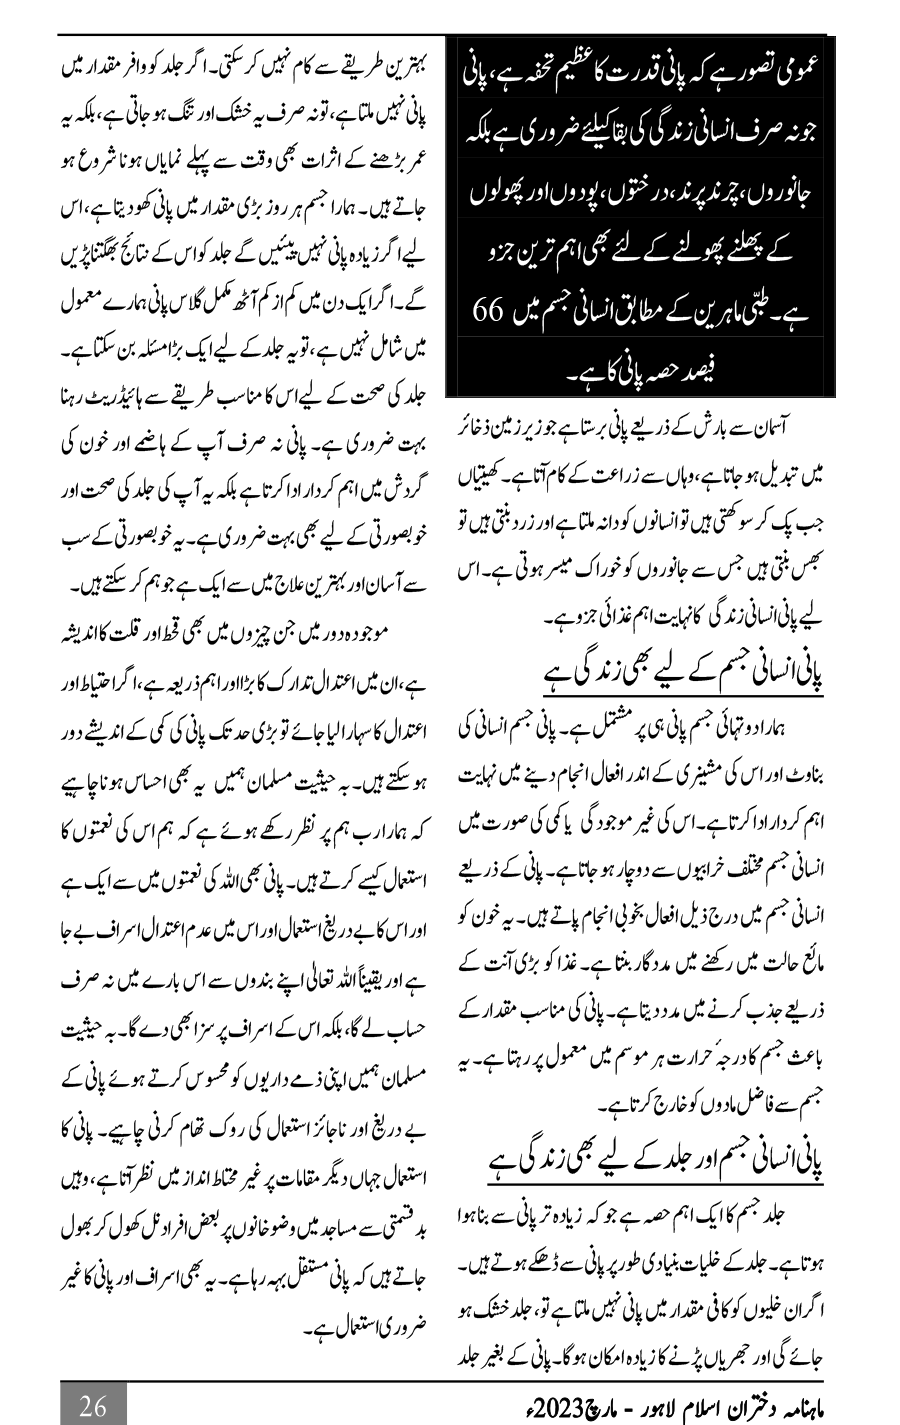 عمومی تصور ہے کہ پانی قدرت کا عظیم تحفہ ہے، پانی
جو نہ صرف انسانی زندگی کی بقا کیلئے ضروری ہے بلکہ
جانوروں، چرند پرند، درختوں، پودوں اور پھولوں
کے پھلنے پھولنے کے لئے بھی اہم ترین جزو
ہے۔ طبّی ماہرین کے مطابق انسانی جسم میں 66
فیصد حصہ پانی کا ہے۔
آسمان سے بارش کے ذریعے پانی برستا ہے جو زیر زمین ذخائر
میں تبدیل ہو جاتا ہے، وہاں سے زراعت کے کام آتا ہے۔ کھیتیاں
جب پک کر سوکھتی ہیں تو انسانوں کو دانہ ملتا ہے اور زرد بنتی ہیں تو
بھس بنتی ہیں جس سے جانوروں کو خوراک میسر ہوتی ہے۔ اس
لیے پانی انسانی زندگی کا نہایت اہم غذائی جزو ہے۔
پانی انسانی جسم کے لیے بھی زندگی ہے
ہمارا دو تہائی جسم پانی ہی پر مشتمل ہے۔ پانی جسم انسانی کی
بناوٹ اور اس کی مشینری کے اندر افعال انجام دینے میں نہایت
اہم کردار ادا کرتا ہے۔ اس کی غیر موجودگی یا کمی کی صورت میں
انسانی جسم مختلف خرابیوں سے دوچار ہو جاتا ہے۔ پانی کے ذریعے
انسانی جسم میں درج ذیل افعال بخوبی انجام پاتے ہیں۔ یہ خون کو
مائع حالت میں رکھنے میں مددگار بنتا ہے۔ غذا کو بڑی آنت کے
ذریعے جذب کرنے میں مدد دیتا ہے۔ پانی کی مناسب مقدار کے
باعث جسم کا درجۂ حرارت ہر موسم میں معمول پر رہتا ہے۔ یہ
جسم سے فاضل مادوں کو خارج کرتا ہے۔
پانی انسانی جسم اور جلد کے لیے بھی زندگی ہے
جلد جسم کا ایک اہم حصہ ہے جو کہ زیادہ تر پانی سے بنا ہوا
ہوتا ہے۔ جلد کے خلیات بنیادی طور پر پانی سے ڈھکے ہوتے ہیں۔
اگر ان خلیوں کو کافی مقدار میں پانی نہیں ملتا ہے تو، جلد خشک ہو
جائے گی اور جھریاں پڑنے کا زیادہ امکان ہوگا۔ پانی کے بغیر جلد
بہترین طریقے سے کام نہیں کرسکتی۔ اگر جلد کو وافر مقدار میں
پانی نہیں ملتا ہے، تو نہ صرف یہ خشک اور تنگ ہو جاتی ہے، بلکہ یہ
عمر بڑھنے کے اثرات بھی وقت سے پہلے نمایاں ہونا شروع ہو
جاتے ہیں۔ ہمارا جسم ہر روز بڑی مقدار میں پانی کھو دیتا ہے، اس
لیے اگر زیادہ پانی نہیں پیئیں گے جلد کو اس کے نتائج بھگتنا پڑیں
گے۔ اگر ایک دن میں کم از کم آٹھ مکمل گلاس پانی ہمارے معمول
میں شامل نہیں ہے، تو یہ جلد کے لیے ایک بڑا مسئلہ بن سکتا ہے۔
جلد کی صحت کے لیے اس کا مناسب طریقے سے ہائیڈریٹ رہنا
بہت ضروری ہے۔ پانی نہ صرف آپ کے ہاضمے اور خون کی
گردش میں اہم کردار ادا کرتا ہے بلکہ یہ آپ کی جلد کی صحت اور
خوبصورتی کے لیے بھی بہت ضروری ہے۔ یہ خوبصورتی کے سب
سے آسان اور بہترین علاج میں سے ایک ہے جو ہم کر سکتے ہیں۔
موجودہ دور میں جن چیزوں میں بھی قحط اور قلت کا اندیشہ
ہے، ان میں اعتدال تدارک کا بڑا اور اہم ذریعہ ہے، اگر احتیاط اور
اعتدال کا سہارا لیا جائے تو بڑی حد تک پانی کی کمی کے اندیشے دور
ہو سکتے ہیں۔ بہ حیثیت مسلمان ہمیں یہ بھی احساس ہونا چاہیے
کہ ہمارا رب ہم پر نظر رکھے ہوئے ہے کہ ہم اس کی نعمتوں کا
استعمال کیسے کرتے ہیں۔ پانی بھی اللہ کی نعمتوں میں سے ایک ہے
اور اس کا بے دریغ استعمال اور اس میں عدم اعتدال اسراف بے جا
ہے اور یقیناً اللہ تعالٰی اپنے بندوں سے اس بارے میں نہ صرف
حساب لے گا، بلکہ اس کے اسراف پر سزا بھی دے گا۔ بہ حیثیت
مسلمان ہمیں اپنی ذمے داریوں کو محسوس کرتے ہوئے پانی کے
بے دریغ اور ناجائز استعمال کی روک تھام کرنی چاہیے۔ پانی کا
استعمال جہاں دیگر مقامات پر غیر محتاط انداز میں نظر آتا ہے، وہیں
بدقسمتی سے مساجد میں وضو خانوں پر بعض افراد نل کھول کر بھول
جاتے ہیں کہ پانی مستقل بہہ رہا ہے۔ یہ بھی اسراف اور پانی کا غیر
ضروری استعمال ہے۔
ماہنامہ دختران اسلام لاہور - مارچ 2023ء
26